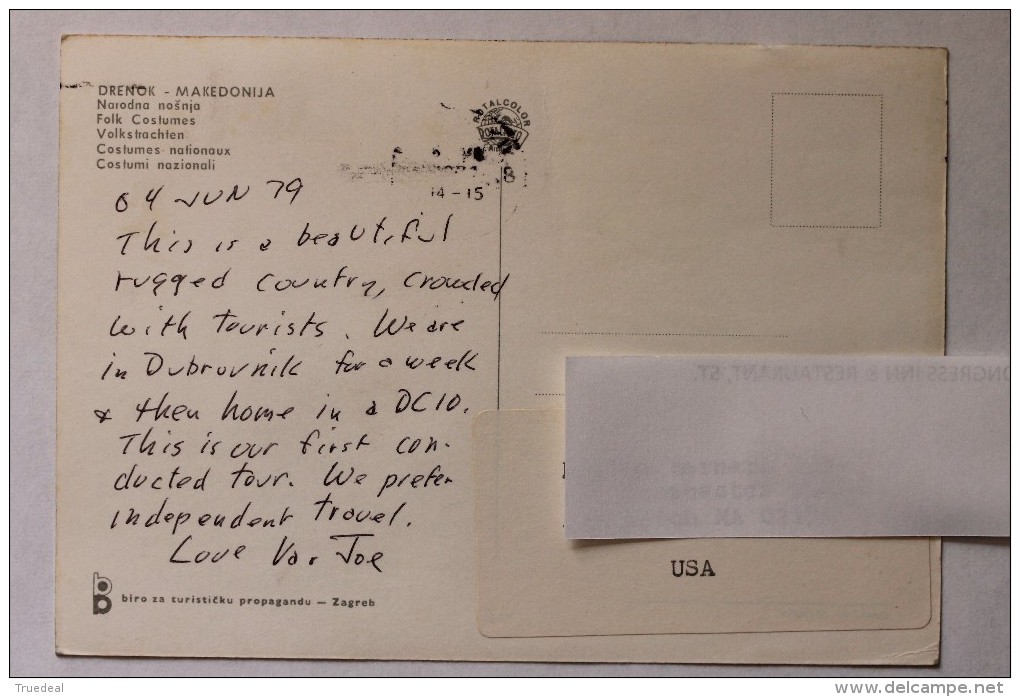 DRENOK - MAKEDONIJA
Narodna nošnja
Folk Costumes
Volkstrachten
Costumes nationaux
Costumi nazionali
ROTALCOLOR
14-15
04 JUN 79
This is a beautiful
rugged country, crowded
with tourists. We are
in Dubrovnik for a week
& then home in a DC10.
This is our first con-
ducted tour. We prefer
independent travel.
Love Joe
biro za turističku propagandu — Zagreb
CONGRESS INN & RESTAURANT, ST.
USA
Truedeal
www.delcampe.net